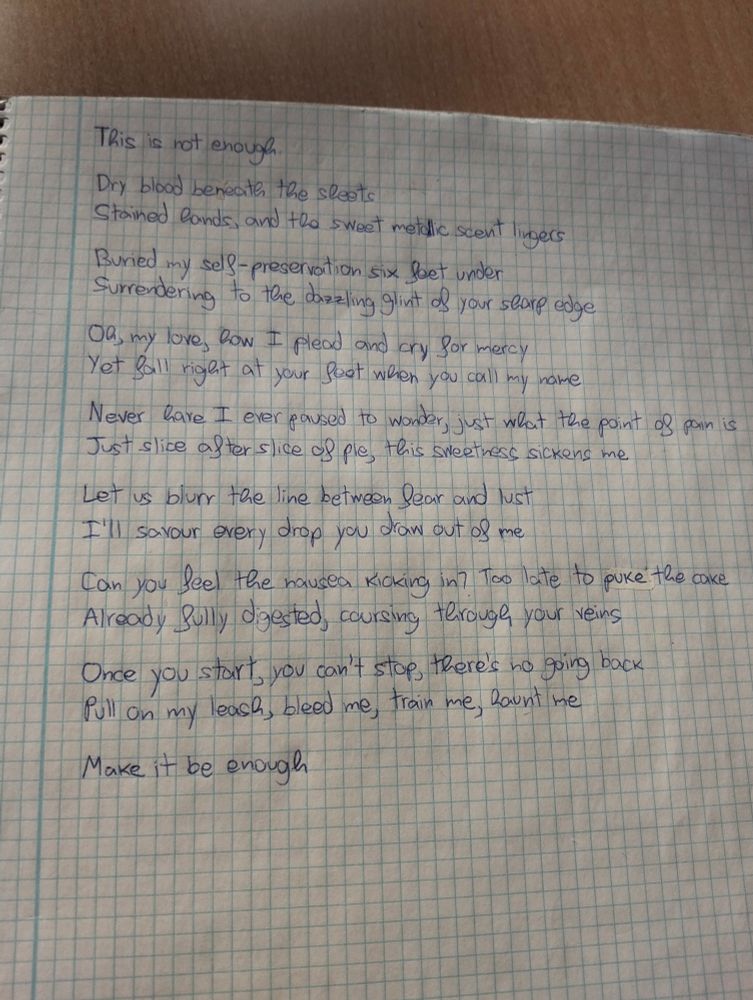 This is not enough.
Dry blood beneath the sheets
Stained hands, and the sweet metallic scent lingers
Buried my self-preservation six feet under
Surrendering to the dazzling glint of your sharp edge
Oh, my love, how I plead and cry for mercy
Yet fall right at your foot when you call my name
Never have I ever paused to wonder, just what the point of pain is
Just slice after slice of pie, this sweetness sickens me
Let us blurr the line between fear and lust
I'll savour every drop you draw out of me
Can you feel the nausea kicking in? Too late to puke the cake
Already fully digested, coursing through your veins
Once you start, you can't stop, there's no going back
Pull on my leash, bleed me, train me, haunt me
Make it be enough